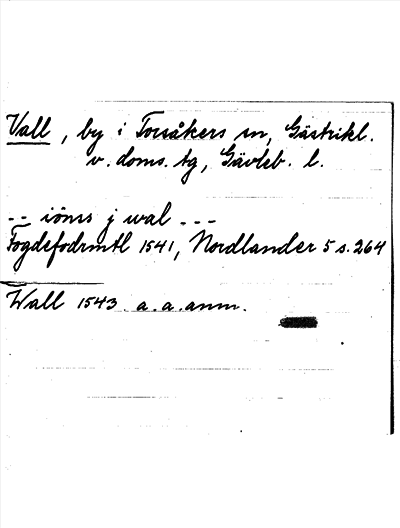 Vall, by i Torsåkers sn, Gästrikl.
v. doms. tg, Gävleb. l.
-- iöns j wal ---
Fogdefodrmtl 1541, Nordlander 5 s. 264
Wall 1543 a.a. anm.